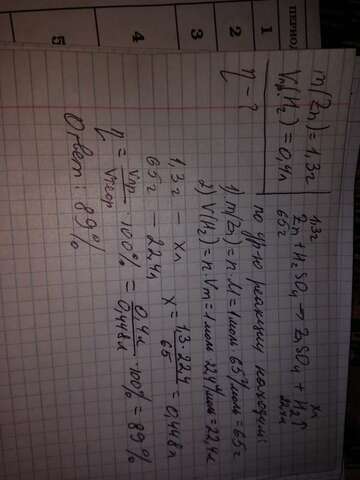 ПЕРИО
1
2
3
4
5
m(Zn) = 1,3г
Vпр.(H₂) = 0,4л
η - ?
1,3г xл
Zn + H₂SO₄ → ZnSO₄ + H₂↑
65г 22,4л
по ур-ю реакции находим:
1) m(Zn) = n·M = 1моль·65г/моль = 65г
2) V(H₂) = n·Vm = 1моль·22,4л/моль = 22,4л
1,3г - xл
65г - 22,4л
x = 1,3·22,4 / 65 = 0,448л
η = Vпр / Vтеор · 100% = 0,4л / 0,448л · 100% = 89%
Ответ: 89%